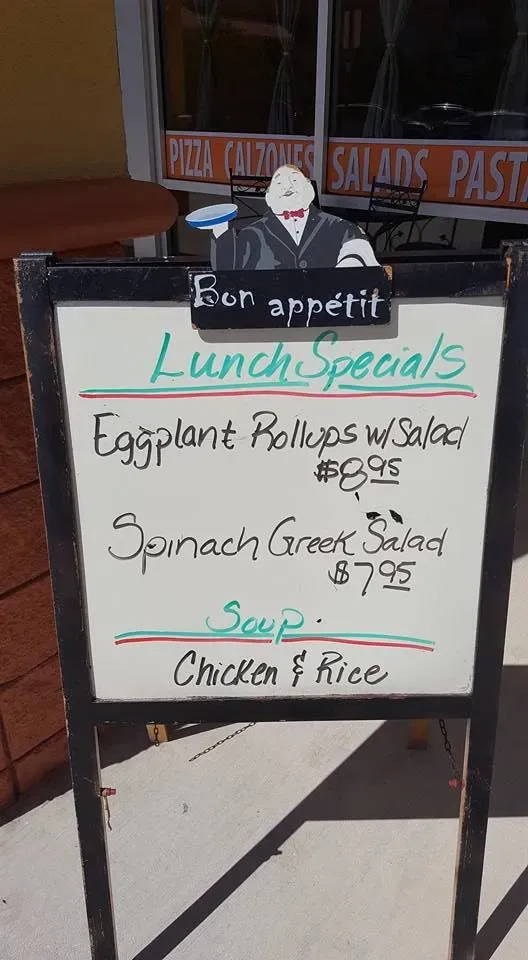 PIZZA CALZONES SALADS PASTA
Bon appétit
Lunch Specials
Eggplant Rollups w/Salad
$8.95
Spinach Greek Salad
$7.95
Soup.
Chicken & Rice